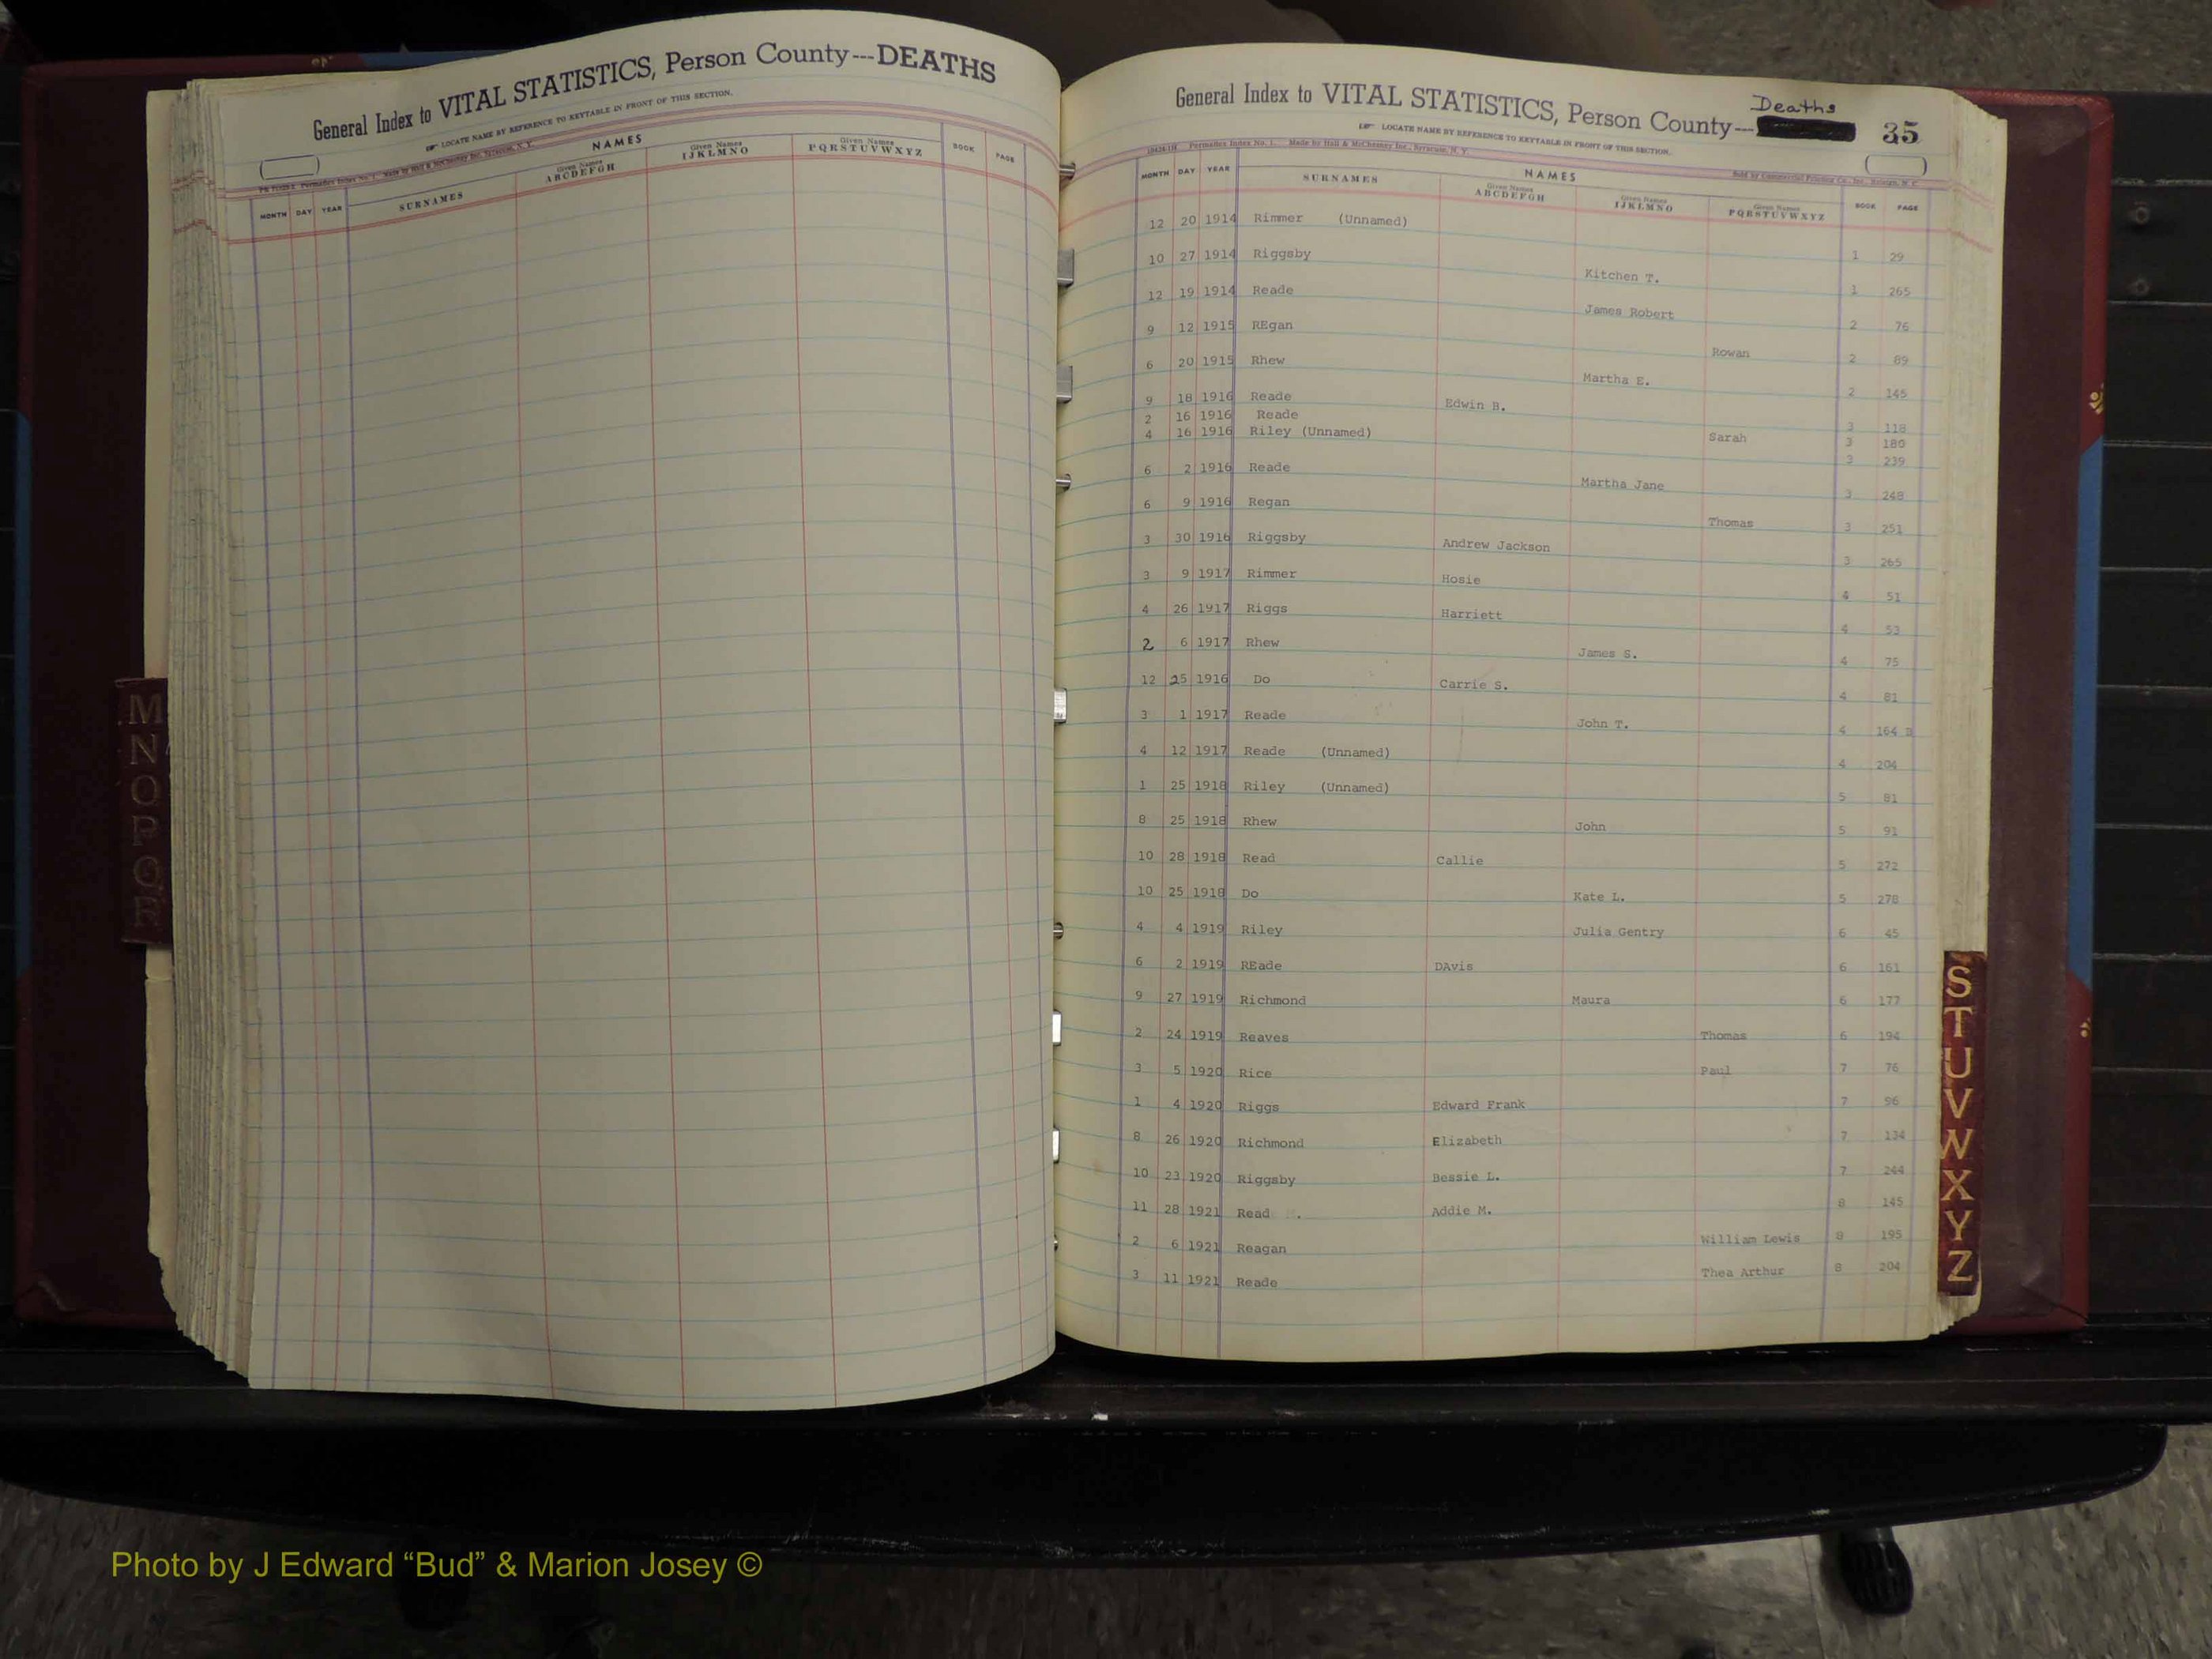 General Index to VITAL STATISTICS, Person County---DEATHS
LOCATE NAME BY REFERENCE TO KEYTABLE IN FRONT OF THIS SECTION.
NAMES
MONTH DAY YEAR SURNAMES Given Names ABCDEFGH Given Names IJKLMNO Given Names PQRSTUVWXYZ BOOK PAGE
M
N
O
P
Q
R
General Index to VITAL STATISTICS, Person County--- Deaths 35
LOCATE NAME BY REFERENCE TO KEYTABLE IN FRONT OF THIS SECTION.
Permadex Index No. 1. Made by Hall & McChesney Inc., Syracuse, N. Y.
NAMES
MONTH DAY YEAR SURNAMES Given Names ABCDEFGH Given Names IJKLMNO Given Names PQRSTUVWXYZ BOOK PAGE
12 20 1914 Rimmer (Unnamed) 1 29
10 27 1914 Riggsby Kitchen T. 1 265
12 19 1914 Reade James Robert 2 76
9 12 1915 REgan Rowan 2 89
6 20 1915 Rhew Martha E. 2 145
9 18 1916 Reade Edwin B. 3 118
2 16 1916 Reade Sarah 3 180
4 16 1916 Riley (Unnamed) 3 239
6 2 1916 Reade Martha Jane 3 248
6 9 1916 Regan Thomas 3 251
3 30 1916 Riggsby Andrew Jackson 3 265
3 9 1917 Rimmer Hosie 4 51
4 26 1917 Riggs Harriett 4 53
2 6 1917 Rhew James S. 4 75
12 25 1916 Do Carrie S. 4 81
3 1 1917 Reade John T. 4 164 B
4 12 1917 Reade (Unnamed) 4 204
1 25 1918 Riley (Unnamed) 5 81
8 25 1918 Rhew John 5 91
10 28 1918 Read Callie 5 272
10 25 1918 Do Kate L. 5 278
4 4 1919 Riley Julia Gentry 6 45
6 2 1919 REade DAvis 6 161
9 27 1919 Richmond Maura 6 177
2 24 1919 Reaves Thomas 6 194
3 5 1920 Rice Paul 7 76
1 4 1920 Riggs Edward Frank 7 96
8 26 1920 Richmond Elizabeth 7 134
10 23 1920 Riggsby Bessie L. 7 244
11 28 1921 Read . Addie M. 8 145
2 6 1921 Reagan William Lewis 8 195
3 11 1921 Reade Thea Arthur 8 204
S
T
U
V
W
X
Y
Z
Photo by J Edward “Bud” & Marion Josey ©